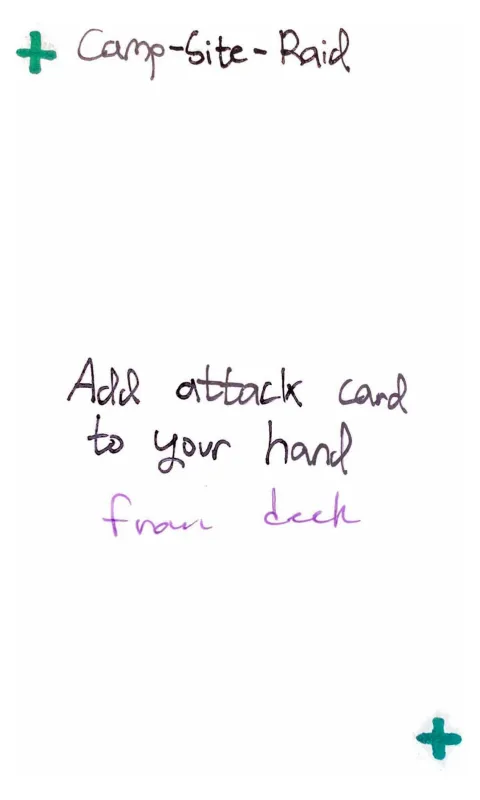 Camp-Site-Raid
Add attack card
to your hand
from deck